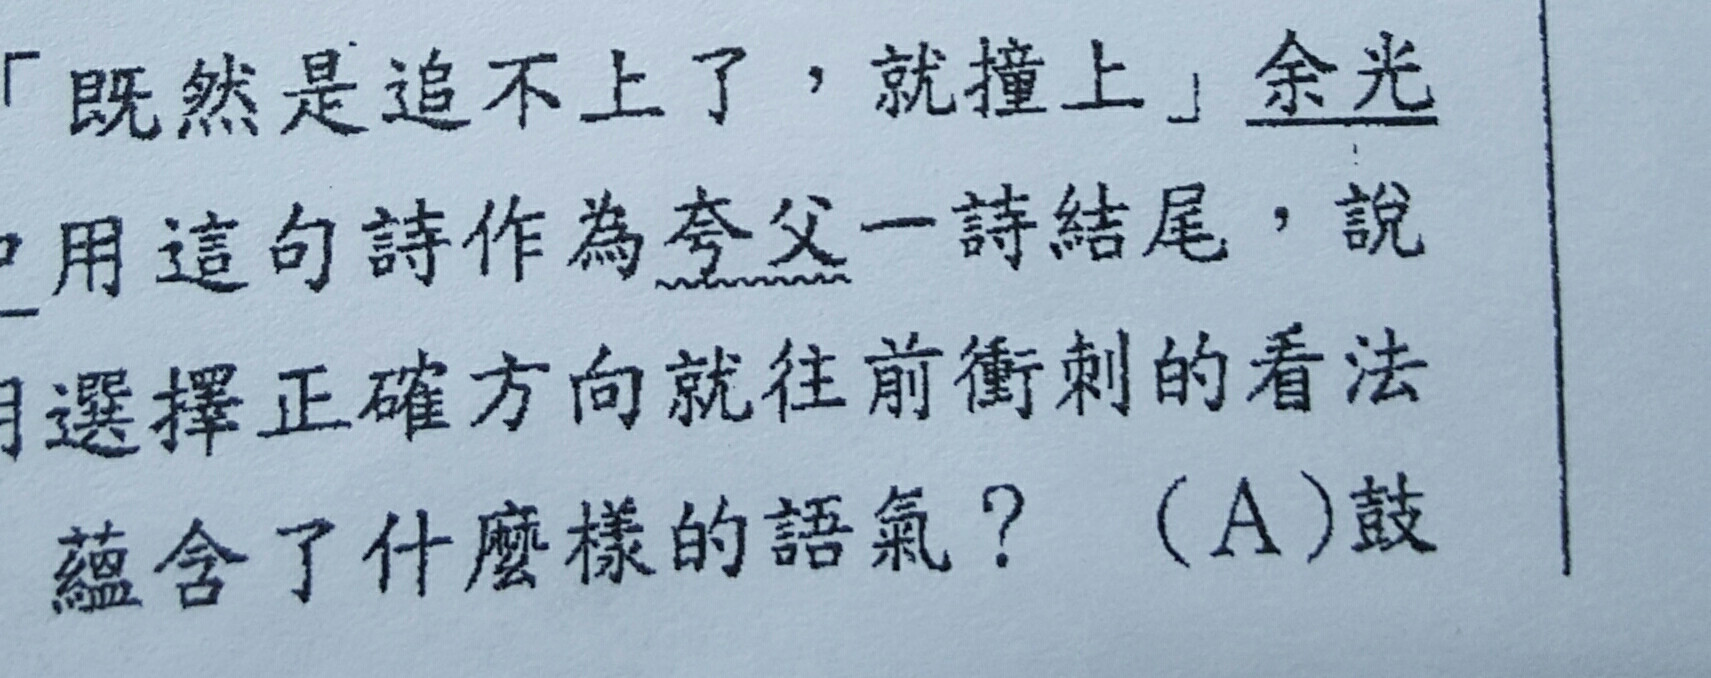 「既然是追不上了，就撞上」余光
用這句詩作為夸父一詩結尾，說
選擇正確方向就往前衝刺的看法
蘊含了什麼樣的語氣？ (A)鼓